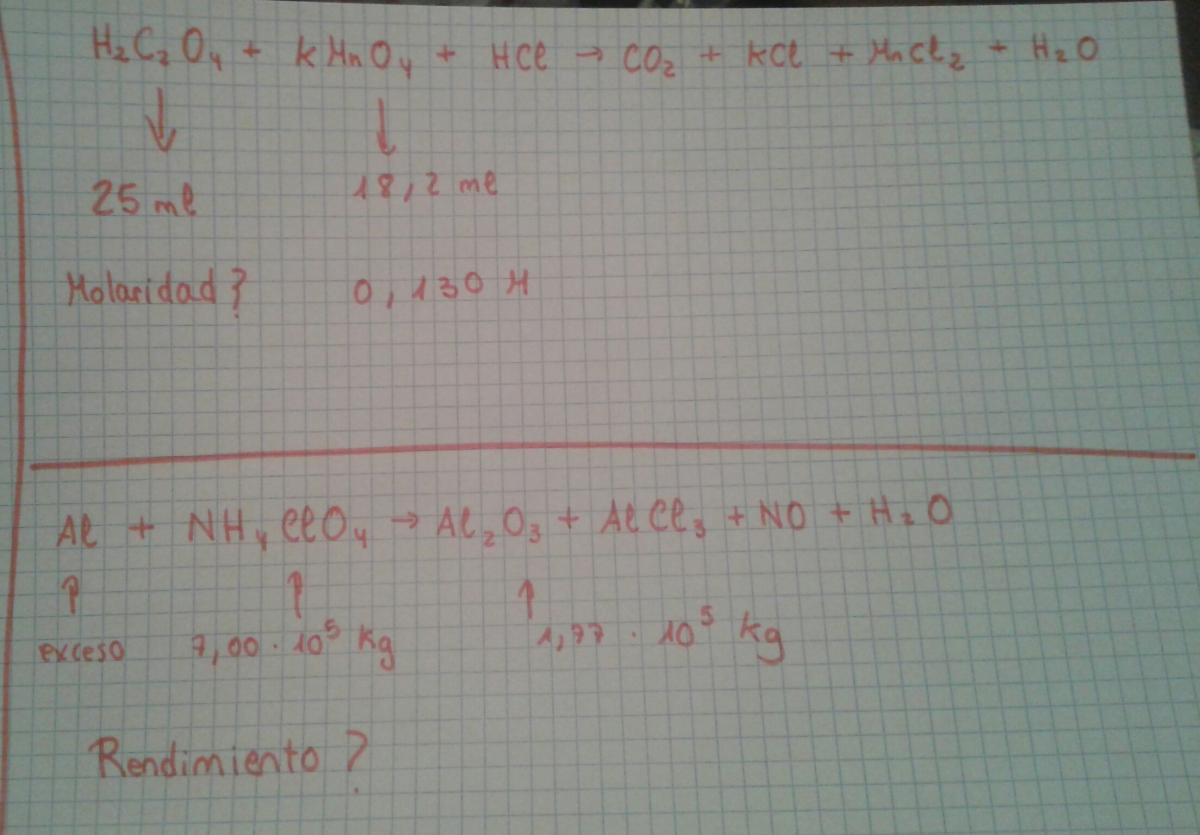 H₂C₂O₄ + KMnO₄ + HCl → CO₂ + KCl + MnCl₂ + H₂O
25 ml 18,2 ml
Molaridad? 0,130 M
Al + NH₄ClO₄ → Al₂O₃ + AlCl₃ + NO + H₂O
exceso 7,00 · 10⁵ Kg 1,77 · 10⁵ Kg
Rendimiento?